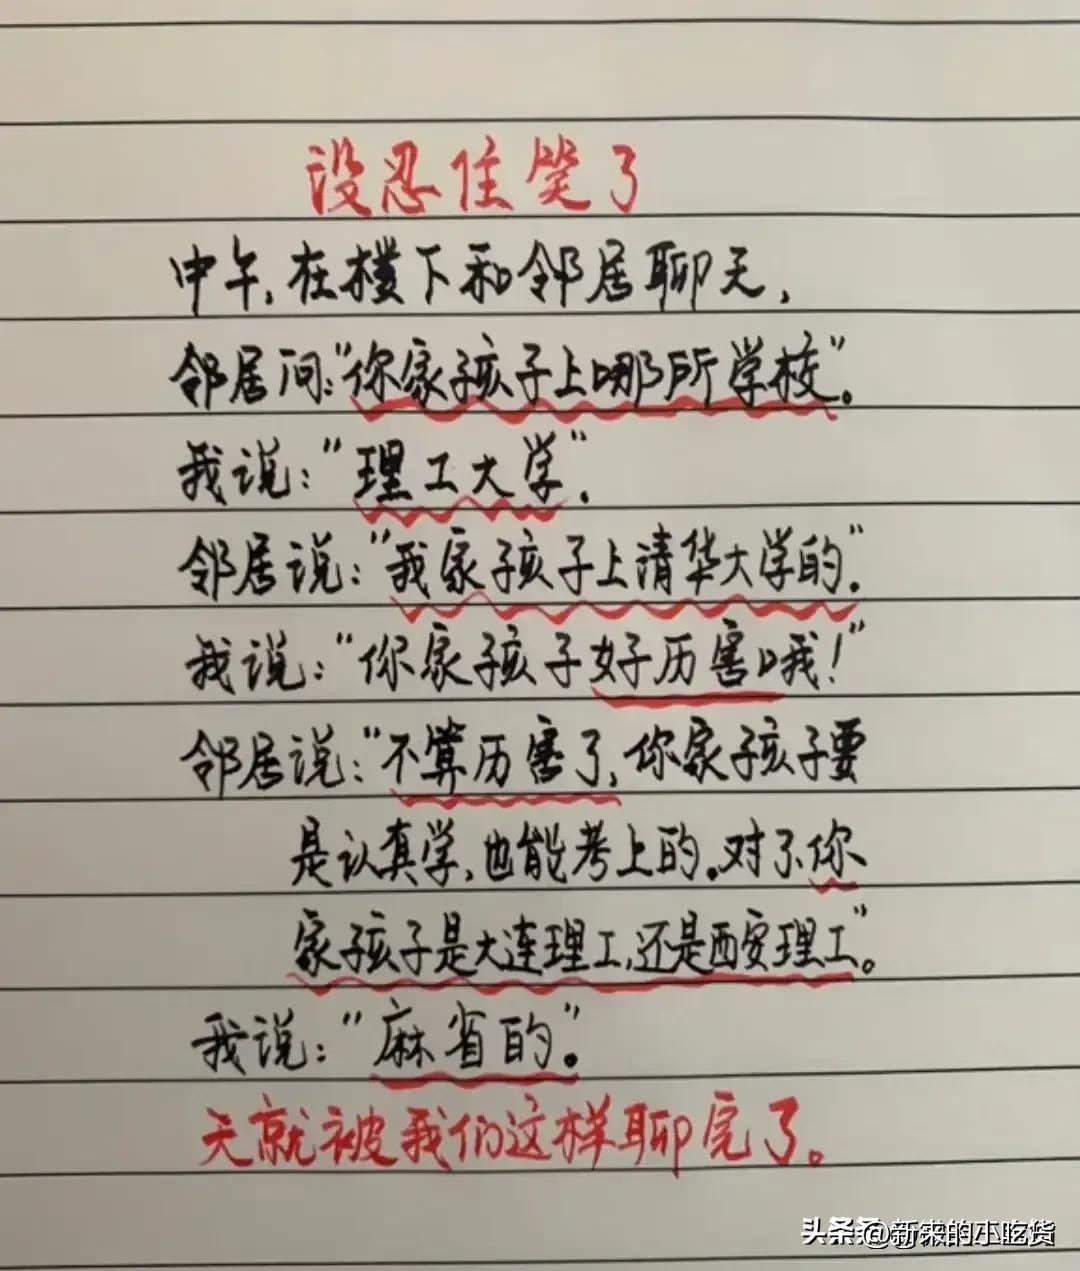 没忍住笑了
中午,在楼下和邻居聊天,
邻居问:"你家孩子上哪所学校"。
我说:"理工大学".
邻居说:"我家孩子上清华大学的".
我说:"你家孩子好历害哦!"
邻居说:"不算历害了,你家孩子要
是认真学,也能考上的.对了你
家孩子是大连理工,还是西安理工"。
我说:"麻省的"。
天就被我们这样聊完了。
头条 @新来的小吃货